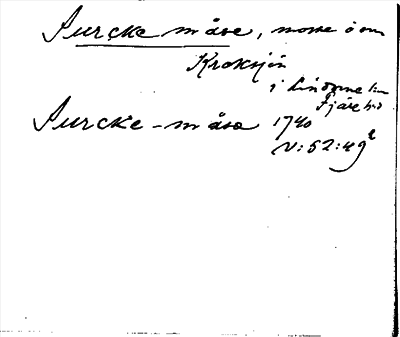 Surcke måse, mosse ö om
Kroksjön
i Lindome sn
Fjäre hd
Surcke-måse 1740
V:52:49